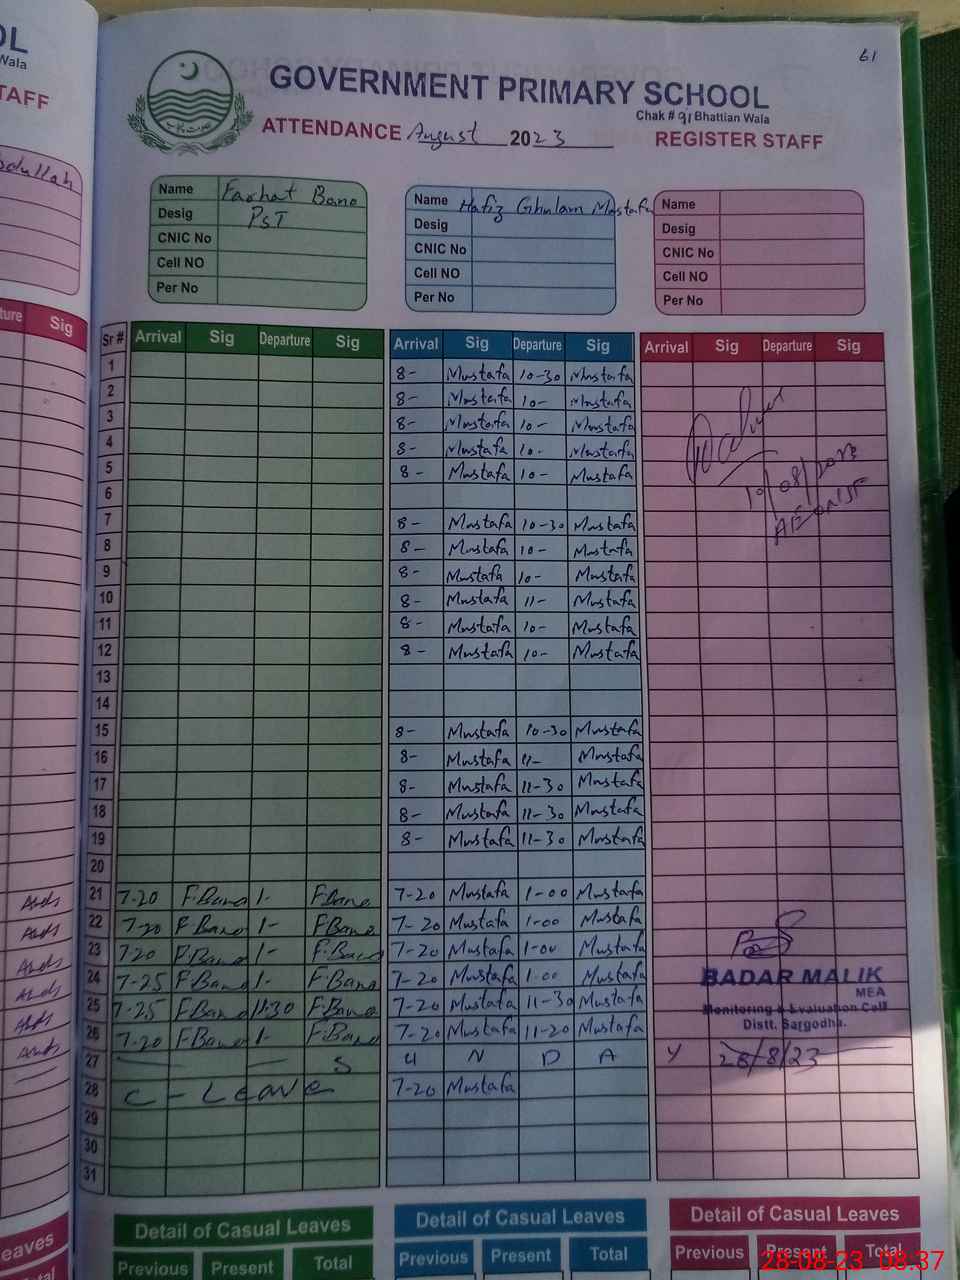 OL
Wala
TAFF
bdullah
ture Sig
61
GOVERNMENT PRIMARY SCHOOL
Chak # 91 Bhattian Wala
ATTENDANCE August 2023 REGISTER STAFF
Name Farhat Bano
Desig PST
CNIC No
Cell NO
Per No
Name Hafiz Ghulam Mustafa
Desig
CNIC No
Cell NO
Per No
Name
Desig
CNIC No
Cell NO
Per No
Sr # Arrival Sig Departure Sig Arrival Sig Departure Sig Arrival Sig Departure Sig
1 8- Mustafa 10-30 Mustafa
2 8- Mustafa 10- Mustafa
3 8- Mustafa 10- Mustafa
4 8- Mustafa 10- Mustafa
5 8- Mustafa 10- Mustafa
6
7 8- Mustafa 10-30 Mustafa
8 8- Mustafa 10- Mustafa
9 8- Mustafa 10- Mustafa
10 8- Mustafa 11- Mustafa
11 8- Mustafa 10- Mustafa
12 8- Mustafa 10- Mustafa
13
14
15 8- Mustafa 10-30 Mustafa
16 8- Mustafa 11- Mustafa
17 8- Mustafa 11-30 Mustafa
18 8- Mustafa 11-30 Mustafa
19 8- Mustafa 11-30 Mustafa
20
21 7-20 F.Bano 1- F.Bano 7-20 Mustafa 1-00 Mustafa
22 7-20 F.Bano 1- F.Bano 7-20 Mustafa 1-00 Mustafa
23 7-20 F.Bano 1- F.Bano 7-20 Mustafa 1-00 Mustafa
24 7-25 F.Bano 1- F.Bano 7-20 Mustafa 1-00 Mustafa
25 7-25 F.Bano 11.30 F.Bano 7-20 Mustafa 11-30 Mustafa
26 7-20 F.Bano 1- F.Bano 7-20 Mustafa 11-20 Mustafa
27 S U N D A Y
28 C - Leave 7-20 Mustafa
29
30
31
19/08/2023
BADAR MALIK
MEA
Monitoring & Evaluation Cell
Distt. Sargodha.
28/8/23
Detail of Casual Leaves
Previous Present Total
Detail of Casual Leaves
Previous Present Total
Detail of Casual Leaves
Previous Present Total
eaves
otal
28-08-23 08:37